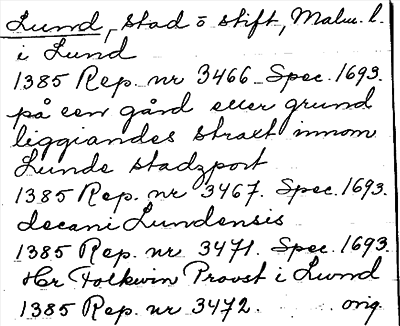 Lund, stad o stift, Malm. l.
i Lund
1385 Rep. nr 3466. Spec. 1693.
på een gård eller grund
liggiandes straxt innom
Lunde stadzport
1385 Rep. nr 3467. Spec. 1693.
decani Lundensis
1385 Rep. nr 3471. Spec. 1693.
Hr Folkwin Provst i Lund
1385 Rep. nr 3472. orig.